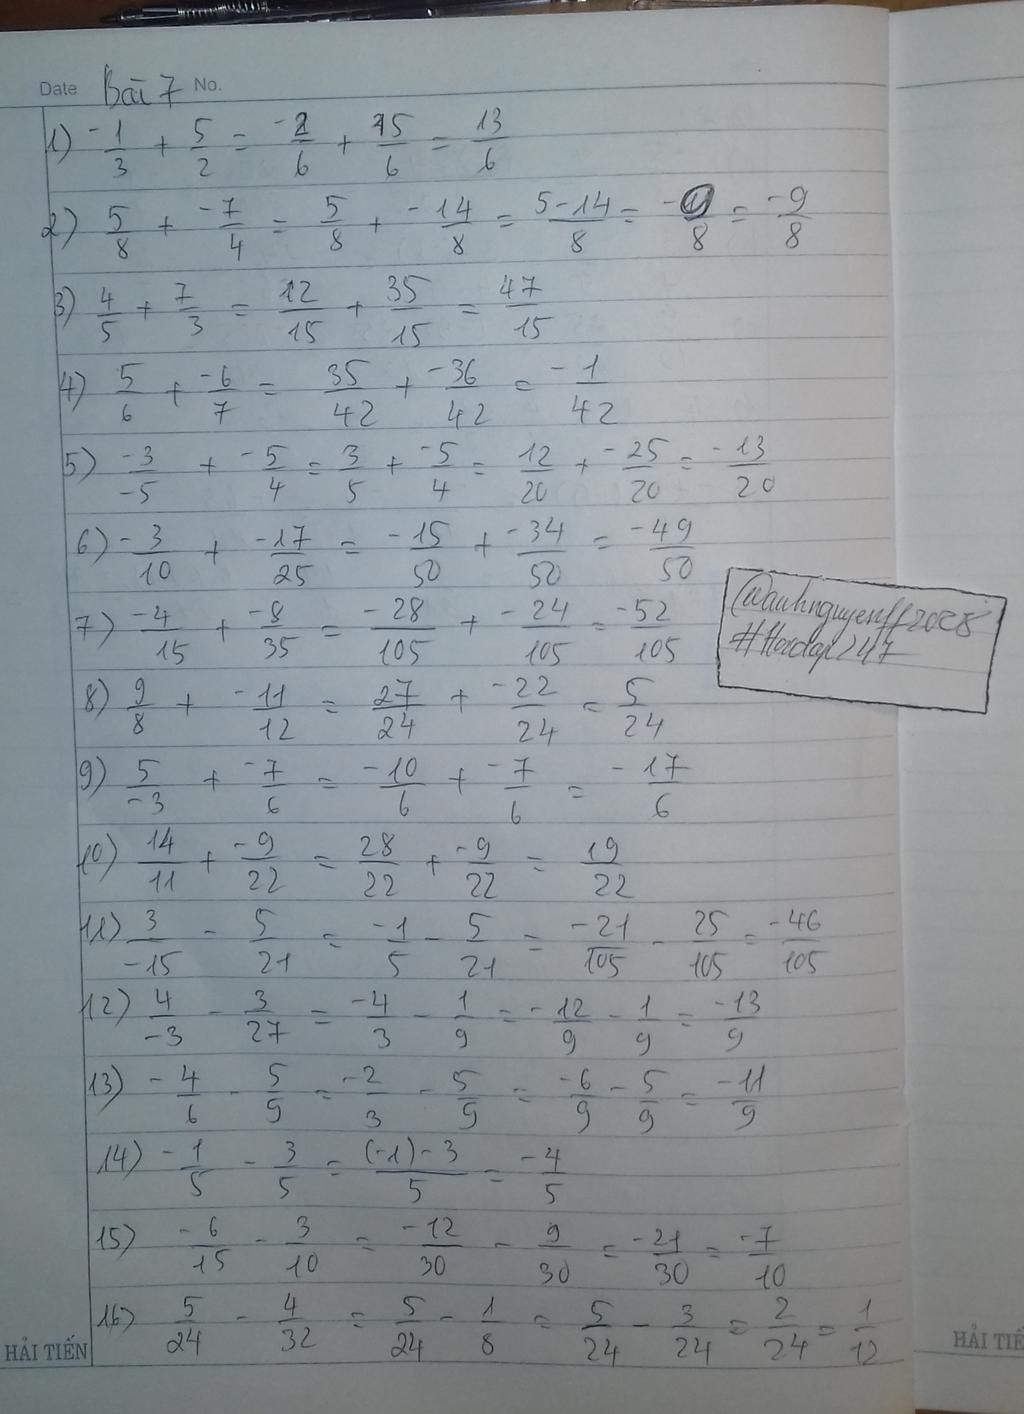 Date Bài 7 No.
1) -1/3 + 5/2 = -2/6 + 15/6 = 13/6
2) 5/8 + -7/4 = 5/8 + -14/8 = 5-14/8 = -9/8 = -9/8
3) 4/5 + 7/3 = 12/15 + 35/15 = 47/15
4) 5/6 + -6/7 = 35/42 + -36/42 = -1/42
5) -3/-5 + -5/4 = 3/5 + -5/4 = 12/20 + -25/20 = -13/20
6) -3/10 + -17/25 = -15/50 + -34/50 = -49/50
7) -4/15 + -8/35 = -28/105 + -24/105 = -52/105
@wanhnguyenff2008
#Hoidap247
8) 9/8 + -11/12 = 27/24 + -22/24 = 5/24
9) 5/-3 + -7/6 = -10/6 + -7/6 = -17/6
10) 14/11 + -9/22 = 28/22 + -9/22 = 19/22
11) 3/-15 - 5/21 = -1/5 - 5/21 = -21/105 - 25/105 = -46/105
12) 4/-3 - 3/27 = -4/3 - 1/9 = -12/9 - 1/9 = -13/9
13) -4/6 - 5/9 = -2/3 - 5/9 = -6/9 - 5/9 = -11/9
14) -1/5 - 3/5 = (-1)-3/5 = -4/5
15) -6/15 - 3/10 = -12/30 - 9/30 = -21/30 = -7/10
16) 5/24 - 4/32 = 5/24 - 1/8 = 5/24 - 3/24 = 2/24 = 1/12
HẢI TIẾN
HẢI TIẾ